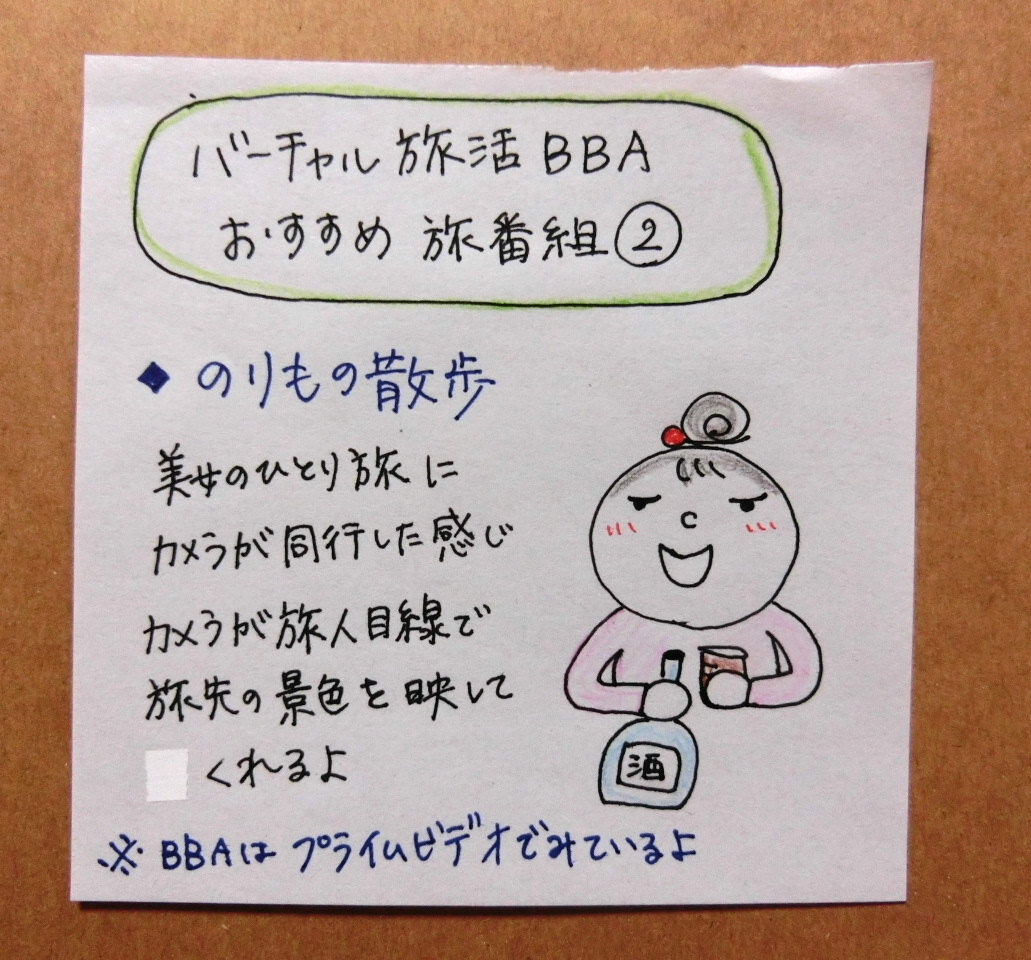 バーチャル旅活BBA
おすすめ 旅番組②
◆ のりもの散歩
美女のひとり旅に
カメラが同行した感じ
カメラが旅人目線で
旅先の景色を映して
くれるよ
酒
※BBAはプライムビデオでみているよ